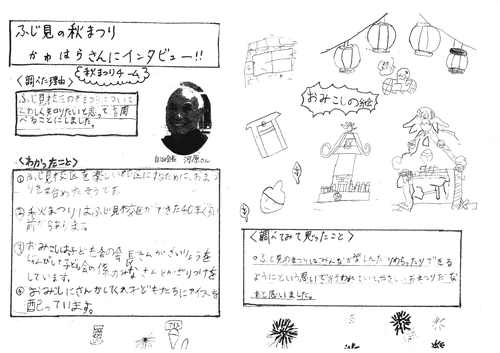 ふじ見の秋まつり
かわはらさんにインタビュー!!
秋まつりチーム
<調べた理由>
ふじ見校区の秋まつりについて
くわしく知りたいと思って調
べることにしました。
自治会長 河原さん
<わかったこと>
①ふじ見校区を楽しい校区にするために、おま
つりを始めたそうです。
②秋まつりはふじ見校区ができた40年くらい
前からあります。
③おみこしは子ども会の会長さんがざいりょうを
えらんで子ども会の係のみなさんとかざりつけを
しています。
④おみこしにさんかしてくれた子どもたちにアイスを
配っています。
おみこしの絵
<調べてみて思ったこと>
。ふじ見のまつりはみんなが楽しんだり
できる
ようにという思いで行われていて、やさしいおまつりだな
あと思いました。